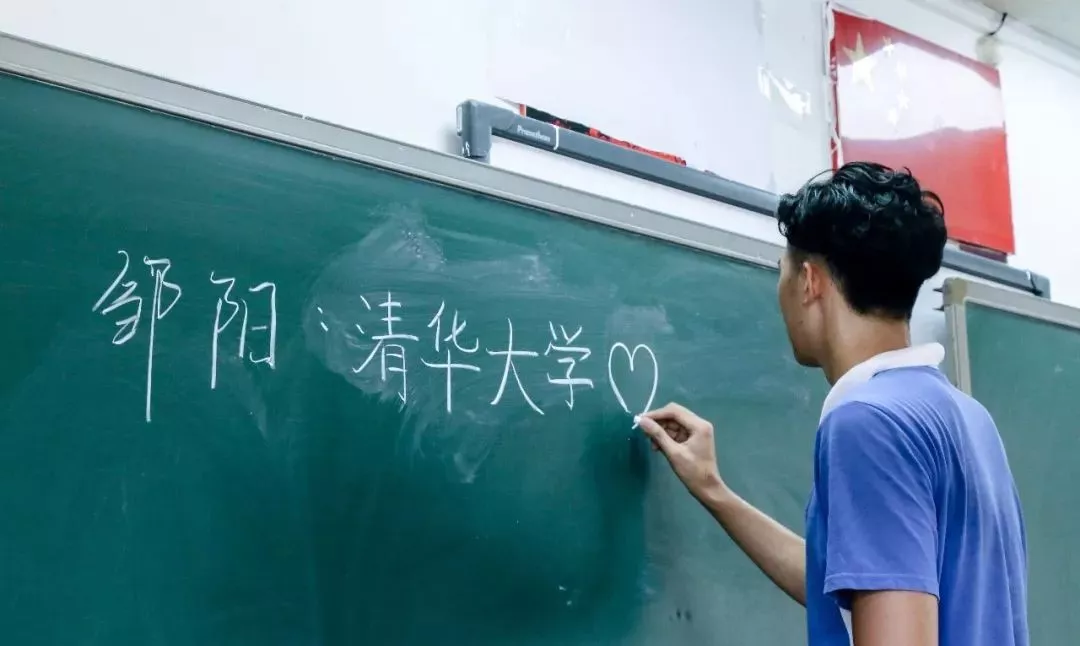 Promethean
邹阳:清华大学♡